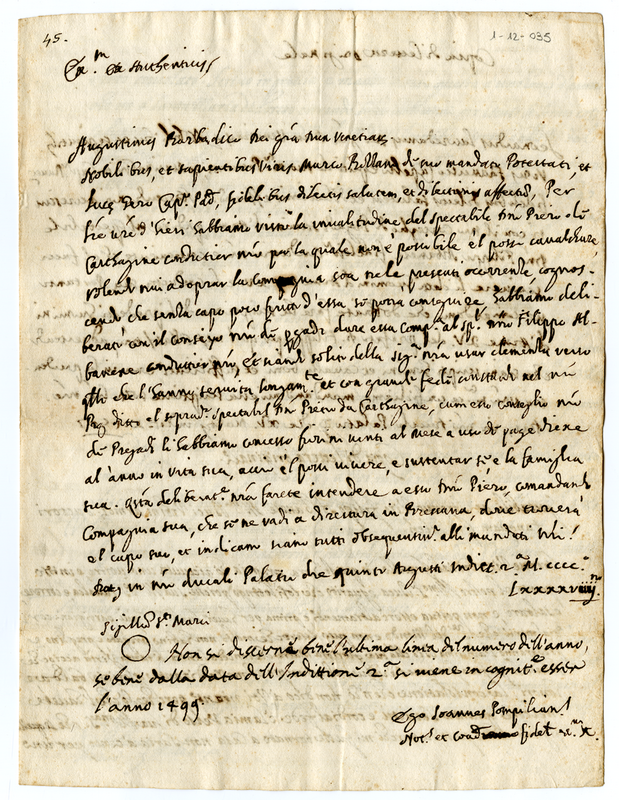 45.
1-12-035
Ex.m Authenticis
Augustinus Barbadico Dei grã Dux Venetiarz
Nobilibus, et sapientibus Viris Marco Bollani de suo mandato Potestati, et
Luce Zeno Cap.º Pad. fidelibus dilectis salutem, et dilectionis affectũ, Per
l're v're d'hieri habbiamo visto la invalitudine del spectabile Dñi Piero de
Carthagine conductier nr̃o per la quale non e possibile el possi cavalchare,
volendo nui adoprar la Compagnia soa nele presenti occorrentie, cognos-
cendo che senza capo poco frutto d'essa se potria conseguire habbiamo deli-
berato con il conseglio nr̃o de Pregadi dare essa Comp.ª al sp. Dño Filippo Al-
banese conductier nr̃o, et siando solita della Sig.ª nr̃a usar clementia verso
quelli che l'hanno servita longam.te et con grande fede, constando nel nr̃o
el soprad.º spectabil Dñi Pietro da Carthagine, cum esso conseglio nr̃o
de Pregadi li habbiamo concesso fiorini vinti al Mese a uso de page diexe
al anno in vita sua, acciò el possi vivere, e sustentar se e la famiglia
sua. Q.sta deliberat.e nr̃a farete intendere a esso Dñi Piero, comandando
Compagnia sua, che se ne vadi a direttura in Bressana, dove troverà
el capo suo, et in dicam siano tutti obsequentiss. alli mandati
Dat. in nr̃o Ducali Palatio die quinto Augusti Inditt. 2.ª M. cccc.º
Lxxxxviiij.
Sigillũ S.ti Marci
Non si discerne bene l'ultima linea dil numero dell'anno,
se bene dalla data dell'Indittione 2.ª si viene in cognit.e esser
l'anno 1499.
Ego Joannes Pompilian
Not.s et Coad. fidel.